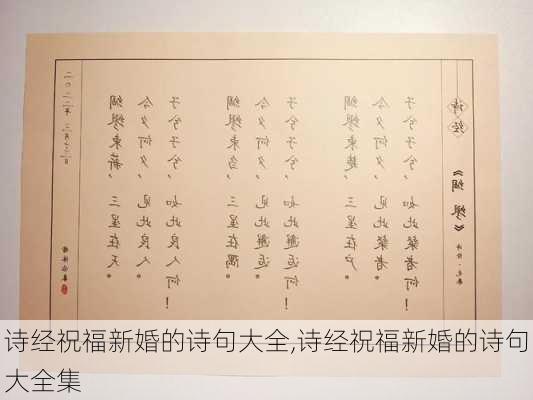 二〇二二年 二月十三日
绸缪束薪，三星在天。
今夕何夕，见此良人。
子兮子兮，如此良人何！
绸缪束刍，三星在隅。
今夕何夕，见此邂逅。
子兮子兮，如此邂逅何！
绸缪束楚，三星在户。
今夕何夕，见此粲者。
子兮子兮，如此粲者何！
《绸缪》
诗经
诗经祝福新婚的诗句大全,诗经祝福新婚的诗句
大全集